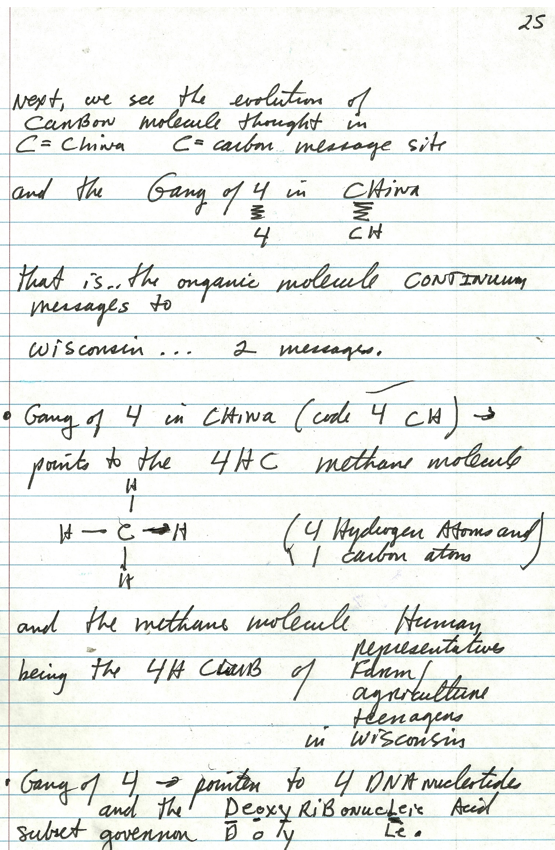 25
Next, we see the evolution of
CARBON molecule thought in
C = China C = carbon message site
and the Gang of 4 in CHina
4 CH
that is.. the organic molecule CONTINUUM
messages to
Wisconsin ... 2 messages.
• Gang of 4 in CHina (code 4 CH) →
points to the 4HC methane molecule
H
H — C → H (4 Hydrogen Atoms and
1 carbon atom)
H
and the methane molecule Human
representatives
being the 4H CLUB of Farm/
agriculture
teenagers
in Wisconsin
• Gang of 4 → pointer to 4 DNA nucleotides
and the Deoxy RiBonucLeic Acid
subset governor D o y Le.